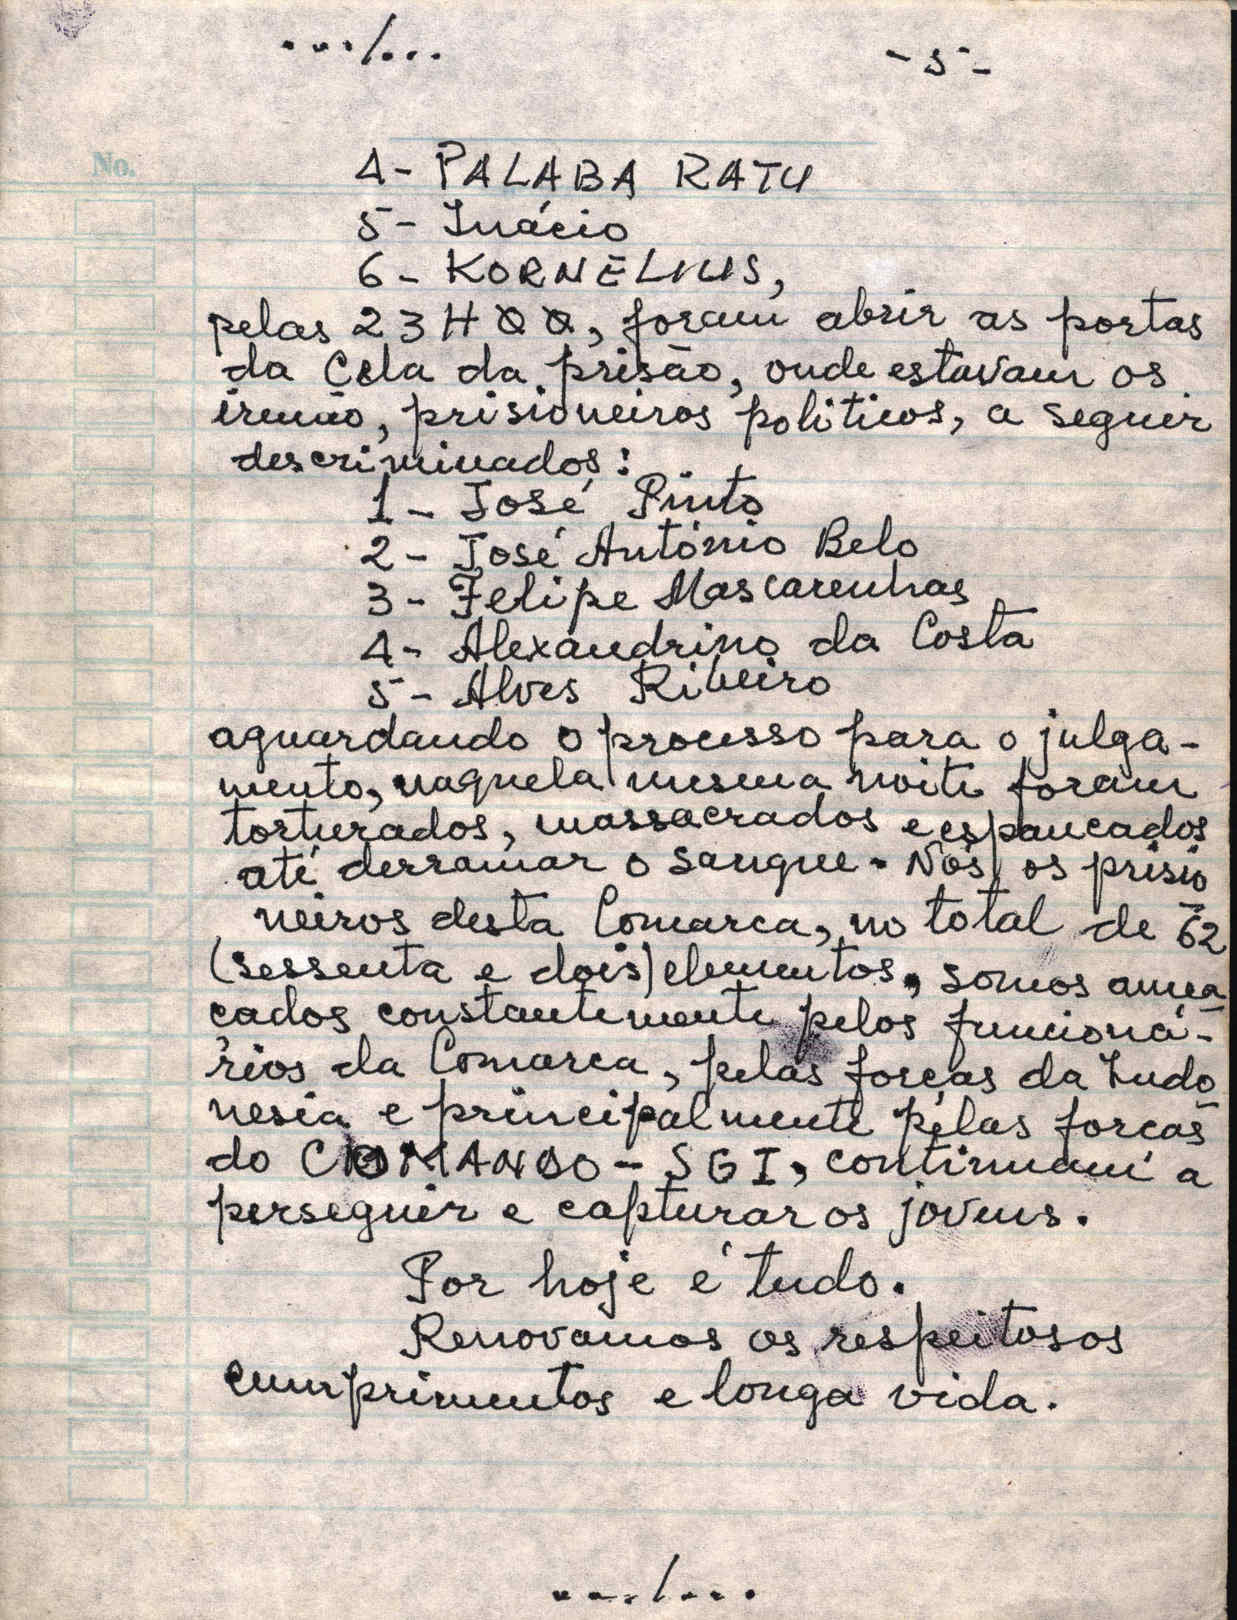 .../... -5-
No.
4- PALABA RATU
5- Inácio
6- KORNELIUS,
pelas 23H00, foram abrir as portas
da Cela da prisão, onde estavam os
irmão, prisioneiros politicos, a seguir
descriminados:
1- José Pinto
2- José António Belo
3- Felipe Mascarenhas
4- Alexandrino da Costa
5- Alves Ribeiro
aguardando o processo para o julga-
mento, naquela mesma noite foram
torturados, massacrados e espancados
até derramar o sangue. Nós, os prisio
neiros desta Comarca, no total de 62
(sessenta e dois) elementos, somos amea
çados constantemente pelos funcioná-
rios da Comarca, pelas forças da Indo
nesia e principalmente pelas forcas
do COMANDO-SGI, continuam a
perseguir e capturar os jovens.
Por hoje é tudo.
Renovamos os respeitosos
cumprimentos e longa vida.
.../...